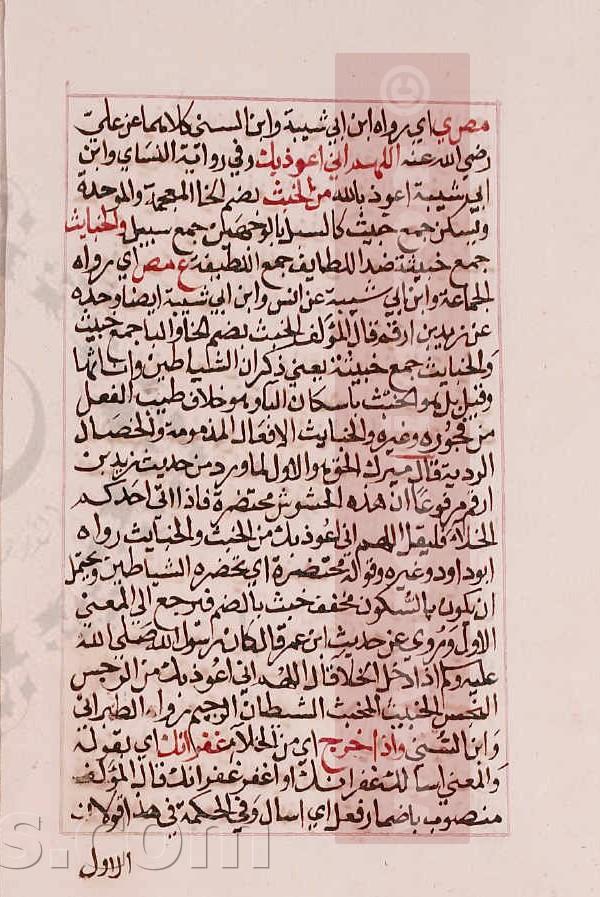 مص ي اي رواه ابن ابي شيبة وابن السني كلاهما عن علي
رضي الله عنه اللهم اني اعوذ بك وفي رواية النساي وابن
ابي شيبة اعوذ بالله من الخبث بضم الخا المعجمة والموحدة
ويسكن جمع خبيث كالسبل بالوجهين جمع سبيل والخبايث
جمع خبيثة ضد اللطايف جمع اللطيفة ع مص اي رواه
الجماعة وابن ابي شيبة عن انس وابن ابي شيبة ايضا وحده
عن زيد بن ارقم قال المؤلف الخبث بضم الخا والبا جمع خبيث
والخبايث جمع خبيثة يعني ذكران الشياطين واناثها
وقيل بل هو الخبث باسكان البا وهو خلاف طيب الفعل
من فجور وغيره والخبايث الافعال المذمومة والخصال
الردية قال ميرك الحق هو الاول لما ورد من حديث زيد بن
ارقم مرفوعا ان هذه الحشوش محتضرة فاذا اتى احدكم
الخلاء فليقل اللهم اني اعوذ بك من الخبث والخبايث رواه
ابو داود وغيره وقوله محتضرة اي يحضره الشياطين ويحتمل
ان يكون بالسكون مخفف خبث بالضم فيرجع الى المعنى
الاول وروي عن حديث ابن عمر قال كان رسول الله صلى الله
عليه وسلم اذا دخل الخلا قال اللهم اني اعوذ بك من الرجس
النجس الخبيث المخبث الشيطان الرجيم رواه الطبراني
وابن السني واذا خرج اي من الخلاء غفرانك اي يقوله
والمعنى اسالك غفرانك او اغفر غفرانك قال المؤلف
منصوب باضمار فعل اي اسال وفي الحكمة في هذا اقولان
الاول
s.com